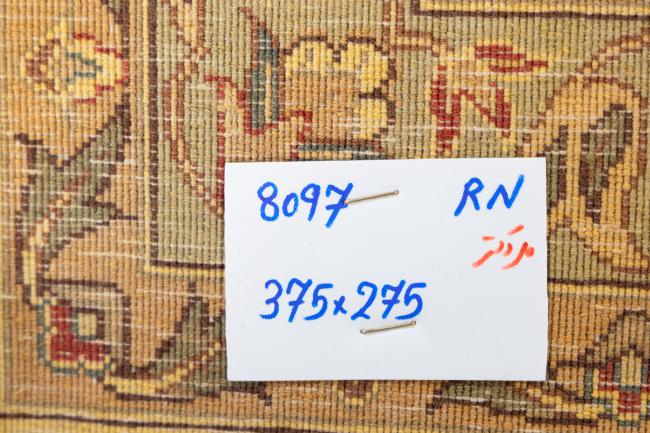 8097 RN
375x275